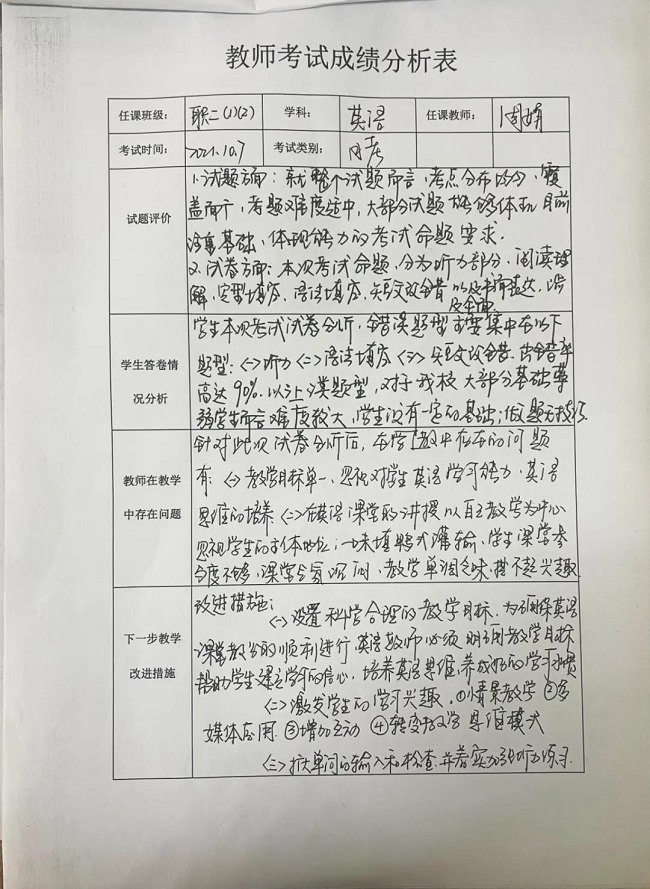 教师考试成绩分析表
任课班级: 职二(1)(2) 学科: 英语 任课教师: 周娟
考试时间: 2021.10.7 考试类别: 月考
试题评价
1.试题方面:就整个试题而言,考点分布均匀,覆
盖面广,考题难度适中,大部分试题能够体现目前
基础,体现能力的考试命题要求.
2.试卷方面:本次考试命题,分为听力部分、阅读理
解、完型填空、语法填空、短文改错以及书面表达,涉
及全面
学生答卷情
况分析
学生本次考试试卷分析,错误题型主要集中在以下
题型:(一)听力(二)语法填空(三)短文改错.出错率
高达90%.以上误题型,对于我校大部分基础薄
弱学生而言难度较大,学生没有一定的基础;做题无技巧.
教师在教学
中存在问题
针对此次试卷分析后,在学教中存在的问题
有:(一)教学目标单一、忽视对学生英语学习能力、英语
思维的培养(二)在英语课堂的讲授以自己教学为中心
忽视学生的主体地位;一味填鸭式灌输,学生课堂参
与度不够,课堂气氛沉闷,教学单调乏味,提不起兴趣
下一步教学
改进措施
改进措施:
(一)设置科学合理的教学目标.为确保英语
课堂教学的顺利进行,英语教师必须明确教学目标
帮助学生建立学习的信心,培养英语思维,养成好的学习习惯
(二)激发学生的学习兴趣.①情景教学②多
媒体应用.③增加互动④转变教学思维模式
(三)扩大单词的输入和检查.并着实加强听力练习.